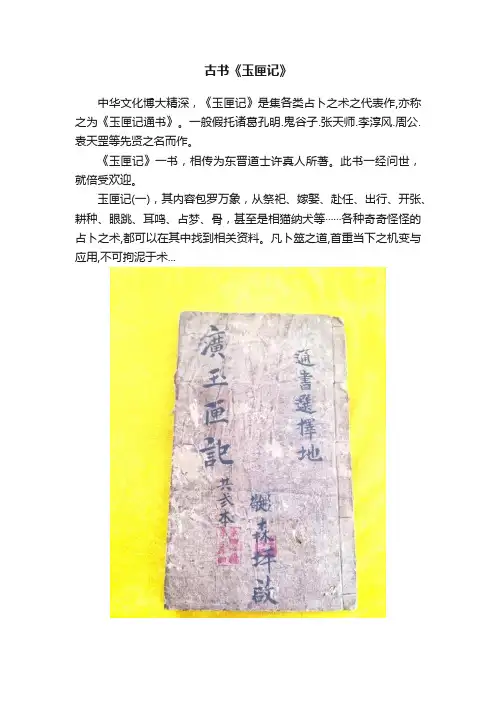 古书《玉匣记》
中华文化博大精深，《玉匣记》是集各类占卜之术之代表作,亦称
之为《玉匣记通书》。一般假托诸葛孔明.鬼谷子.张天师.李淳风.周公.
袁天罡等先贤之名而作。
《玉匣记》一书，相传为东晋道士许真人所著。此书一经问世，
就倍受欢迎。
玉匣记(一)，其内容包罗万象，从祭祀、嫁娶、赴任、出行、开张、
耕种、眼跳、耳鸣、占梦、骨，甚至是相猫纳犬等……各种奇奇怪怪的
占卜之术,都可以在其中找到相关资料。凡卜筮之道,首重当下之机变与
应用,不可拘泥于术...
通書選擇地
廣玉匣記
共弍本
森坪啟